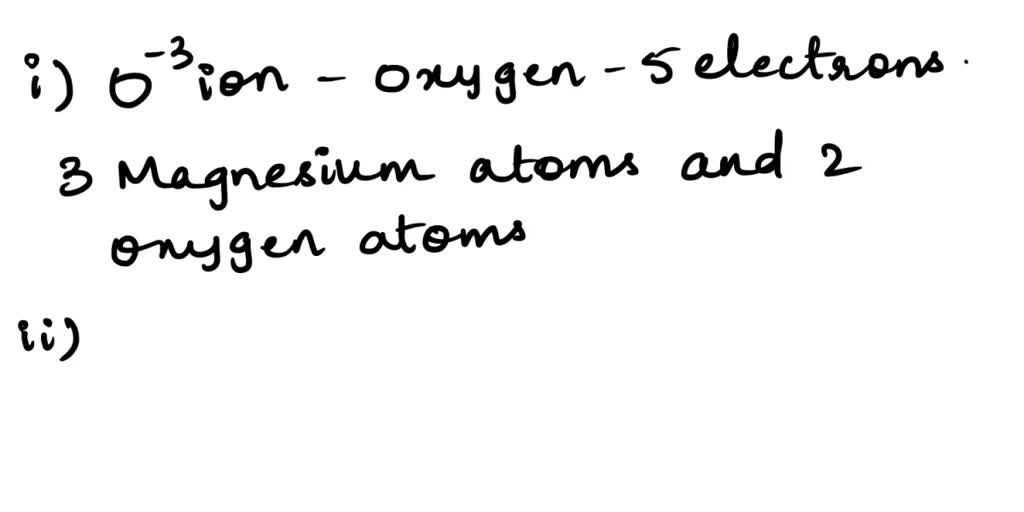 i) O⁻³ ion - oxygen - 5 electrons.
3 Magnesium atoms and 2
oxygen atoms
ii)